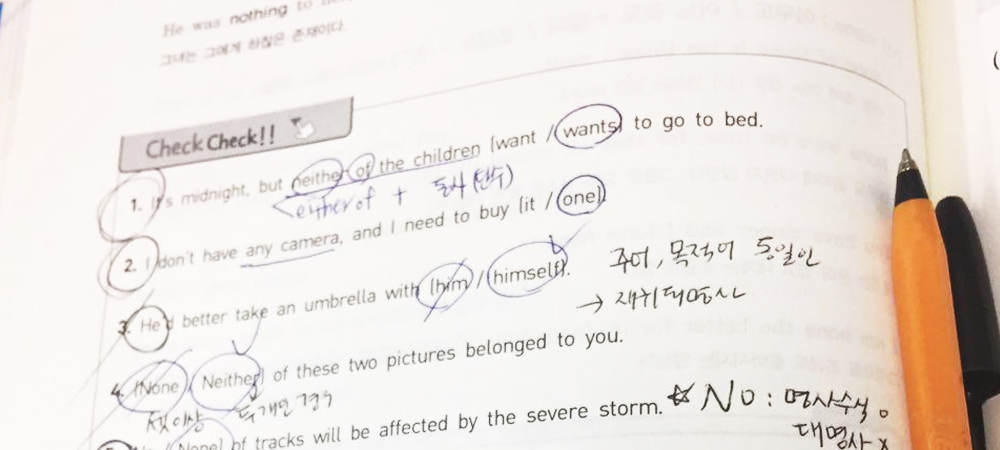 He was nothing to
그녀는 그에게 하찮은 존재이다.
Check Check!!
1. It's midnight, but neither of the children (want / wants) to go to bed.
either of + 동사(단수)
2. I don't have any camera, and I need to buy (it / one).
3. He'd better take an umbrella with (him / himself).
주어, 목적어 동일인
→ 재귀대명사
4. (None / Neither) of these two pictures belonged to you.
셋이상 두개인 경우
None) of tracks will be affected by the severe storm.
☆ No : 명사수식 o
대명사 x